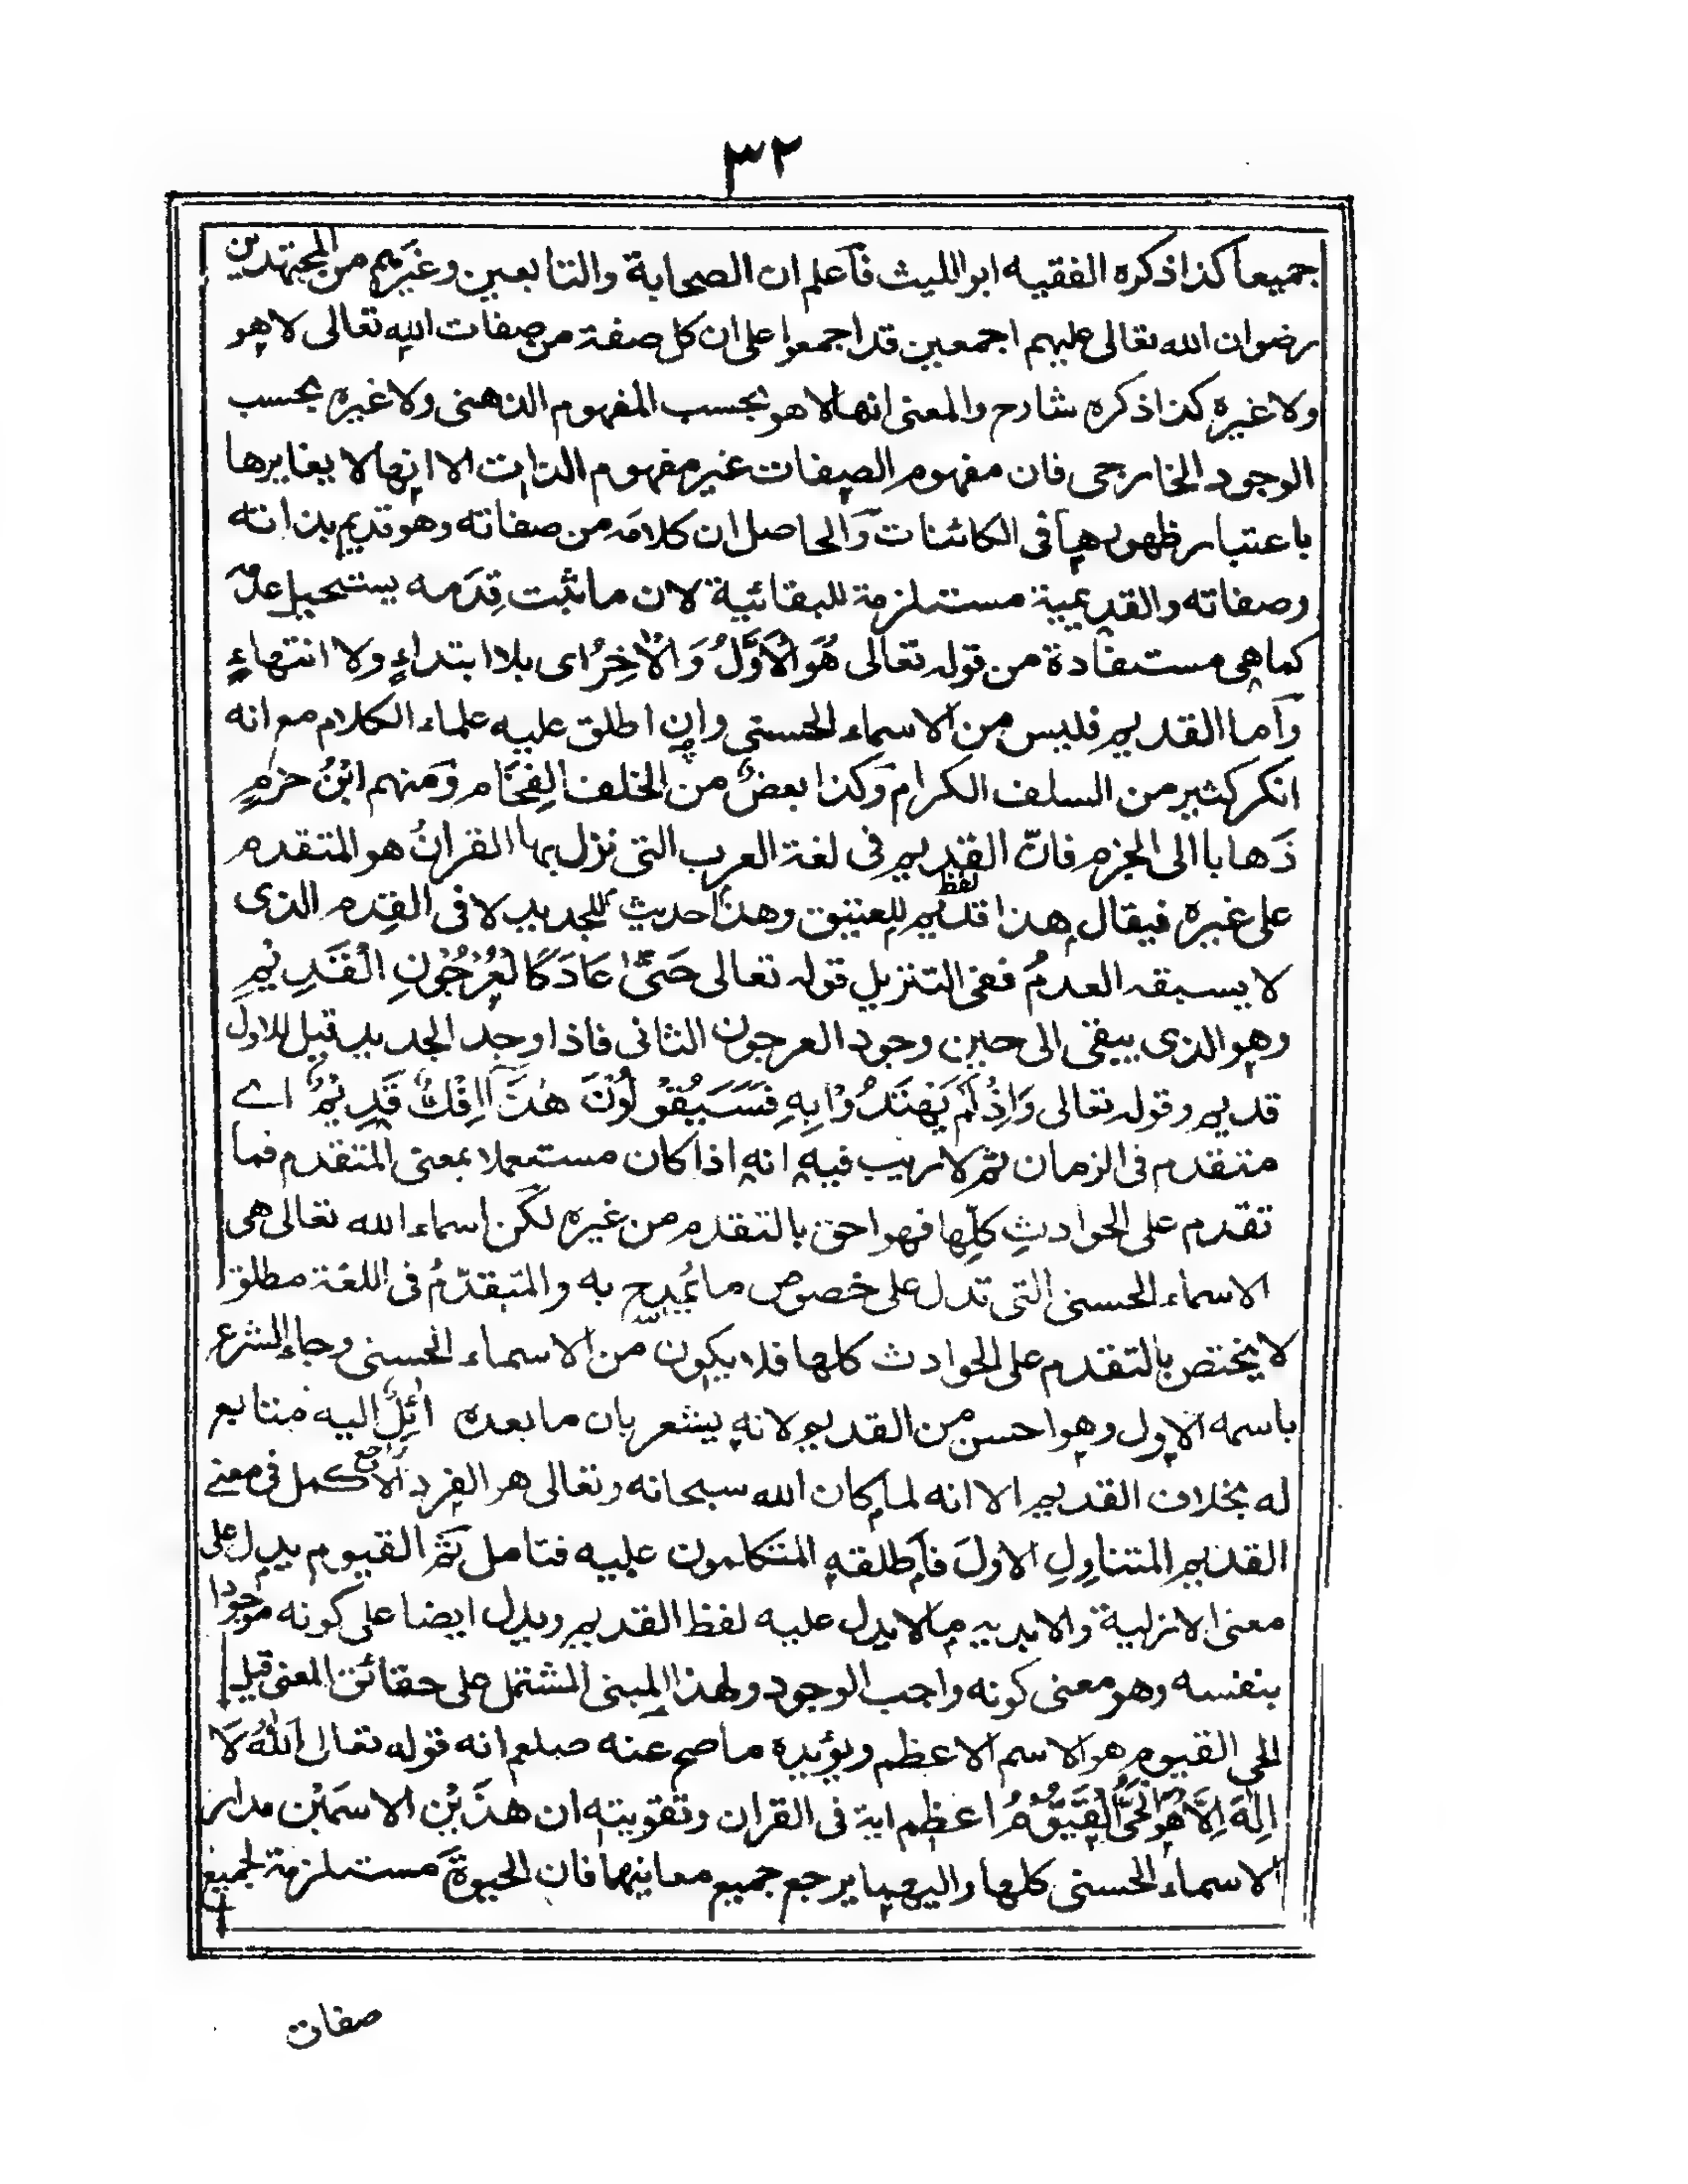 ٣٢
جميعا كذا ذكره الفقيه ابو الليث فاعلم ان الصحابة والتابعين وغيرهم من المجتهدين
رضوان الله تعالى عليهم اجمعين قد اجمعوا على ان كل صفة من صفات الله تعالى لا هو
ولا غيره كذا ذكره شارح والمعنى انها لا هو بحسب المفهوم الذهنى ولا غيره بحسب
الوجود الخارجى فان مفهوم الصفات غير مفهوم الذات الا انها لا يغايرها
باعتبار ظهورها فى الكائنات والحاصل ان كلامه من صفاته وهو قديم بذاته
وصفاته والقديمية مستلزمة للبقائية لان ما ثبت قِدَمه يستحيل عدمه
كما هى مستفادة من قوله تعالى هُوَ الْاَوَّلُ وَالْاٰخِرُ اى بلا ابتداءٍ ولا انتهاءٍ
واما القديم فليس من الاسماء الحسنى وان اطلق عليه علماء الكلام مع انه
انكر كثير من السلف الكرام وكذا بعضٌ من الخلف الفِخَام ومنهم ابْنُ حزمٍ
ذَهابا الى الجزم فانّ القديم فى لغة العرب التى نزل بها القرانُ هو المتقدم
على غيره فيقال هذا قديم للعتيق وهذا حديث للجديد لا فى القِدم الذى
لفظ
لا يسبقه العدمُ ففى التنزيل قوله تعالى حَتّٰى عَادَ كَالْعُرْجُوْنِ الْقَدِيْمِ
وهو الذى يبقى الى حين وجود العرجون الثانى فاذا وجد الجديد قيل للاول
قديم وقوله تعالى وَاِذْ لَمْ يَهْتَدُوْا بِهٖ فَسَيَقُوْلُوْنَ هٰذَا اِفْكٌ قَدِيْمٌ اے
متقدم فى الزمان ثم لا ريب فيه انه اذا كان مستعملا بمعنى المتقدم فما
تقدم على الحوادثِ كلِّها فهو احق بالتقدم من غيره لكن اسماء الله تعالى هى
الاسماء الحسنى التى تدل على خصوص ما يُمدح به والمتقدّمُ فى اللغة مطلق
لا يختص بالتقدم على الحوادث كلها فلا يكون من الاسماء الحسنى وجاء الشرع
باسمه الاول وهو احسن من القديم لانه يشعر بان ما بعده ائِلٌ اليه متابع
راجع
له بخلاف القديم الا انه لما كان الله سبحانه وتعالى هو الفرد الاكمل فى معنے
القديم المتناوِلِ الاولَ فاطلقه المتكلمون عليه فتامل ثم القيوم يدل على
معنى الازلية والابديه ما لا يدل عليه لفظ القديم ويدل ايضا على كونه موجودا
بنفسه وهو معنى كونه واجب الوجود ولهذا المبنى المشتمل على حقائق المعنى قيل
الحى القيوم هو الاسم الاعظم ويؤيده ما صح عنه صلعم انه قوله تعالى اَللّٰهُ لَا
اِلٰهَ اِلَّا هُوَ الْحَىُّ الْقَيُّوْمُ اعظم اية فى القران وتقويته ان هذَيْنِ الاسمَيْن مدار
الاسماء الحسنى كلها واليهما يرجع جميع معانيها فان الحيوةَ مستلزمة لجميع
صفات